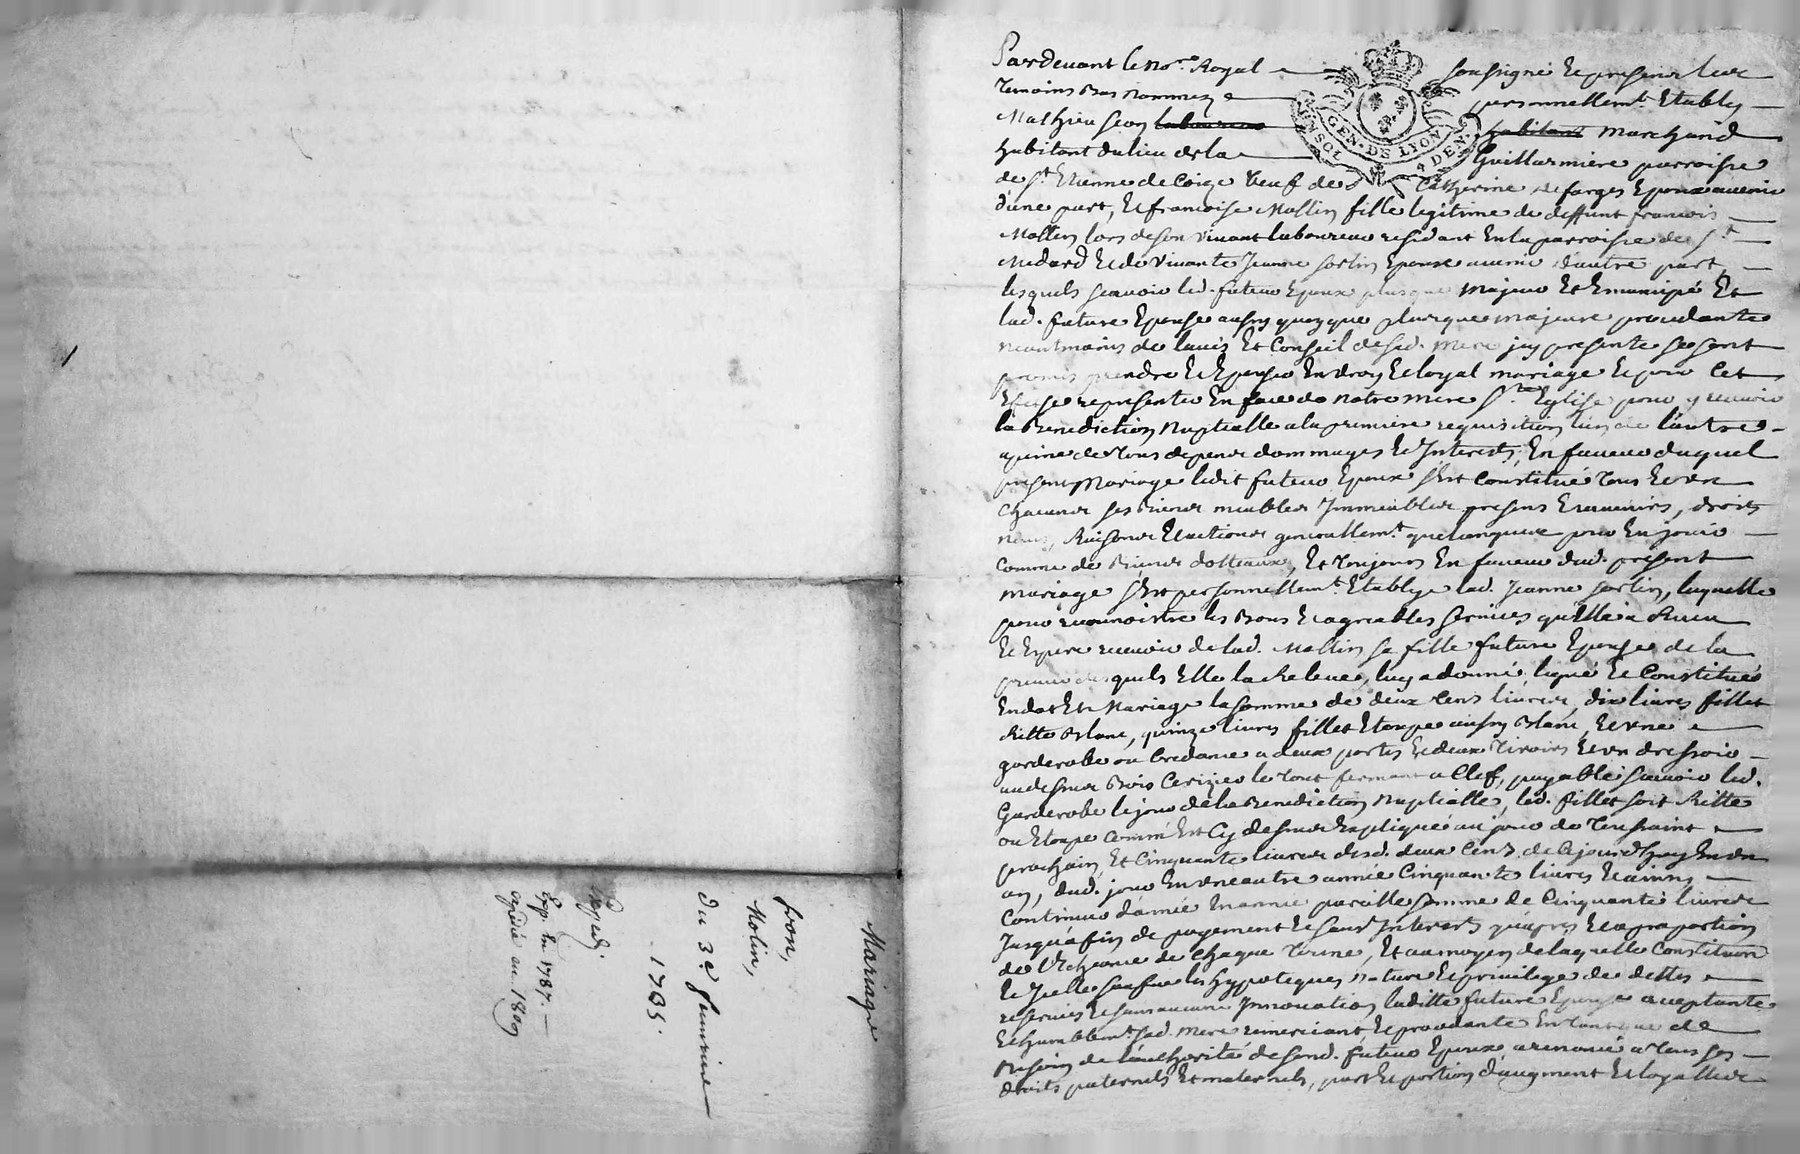 Mariage
fron,
Molin,
du 3e. fevrier
1785.
Exped.
Exp. en 1787.
expédié en 1809
Pardevant le nore. Royal soussigné Et presens les
temoins Bas nommez personnellemt. Etablis
Mathieu fron laboureur habitant marchand
habitant du lieu de la Guillarmiere parroisse
GEN. DE LYON
de st. Etienne de Coize veuf de Catherine defarges Epoux avenir
d'une part, Et francoise Mollin fille legitime de deffunt francois
Mollin lors de son vivant laboureur residant En la parroisse de st.
Medard Et de vivante Jeanne sortin Epouse avenir d'autre part,
lesquels scavoir led. futeur Epoux plus que majeur Et Emancipé Et
lad. future Epouse aussy quoyque plus que majeure procedante
neantmoins de lavis Et Conseil de sad. mere icy presente se sont
promis prendre Et Epouser En vray Et loyal mariage Et pour Cet
Effet se representer En face de notre mere ste. Eglise pour y recevoir
la Benediction Nuptialle a la premiere requisition l'un de l'autre
a peine de tous depens dommages Et Interets, En faveur duquel
present Mariage ledit futeur Epoux s'est Constitué tous Et un
chacuns ses Biens meubles Immeubles presens Et avenirs, droits
noms, Raisons Et actions generallemt. quelconques pour En jouir
comme de Biens dotteaux, Et toujours En faveur dud. present
mariage s'est personnellemt. Etablye lad. Jeanne sortin, laquelle
pour reconnoistre les Bons Et agreables services qu'Elle a Recu
Et Espere recevoir de lad. Mollin sa fille future Epouse de la
preuve desquels Elle la Releve, luy a donné, légué Et Constitué
En dot Et Mariage la somme de deux Cens livres, dix livres fillet
Ritte Blanc, quinze livres fillet Etoupe aussy Blanc, Et une
garderobe ou Credance a deux portes Et deux tiroirs Et un dressoir
au dessus Bois Cerizier le tout fermant a Clef, payable scavoir lad.
Garderobe le jour de la Benediction Nuptialle, led. fillet soit Ritte
ou Etoupe comme Est Cy dessus Expliqué au jour de Toussaint
prochain, Et Cinquante livres desd. deux Cens de ce jourd'huy En un
an, dud. jour En une autre année Cinquante livres Et ainsy
Continuer d'année En année pareille somme de Cinquante livres
Jusqu'a fin de payement Et sans Interets qu'apres Et a proportion
de l'Echeance de Chaque terme, Et au moyen de laquelle Constitution
Et Icelle sauf les hypoteques nature Et privilege de dettes
reservés Et sans aucune Innovation laditte future Epouse acceptante
Et humblemt. sad. mere remerciant Et procedante En tant que de
Besoin de l'authorité de sond. futeur Epoux a renoncé a tous ses
droits paternels Et maternels, part Et portion d'augment Et loyalles